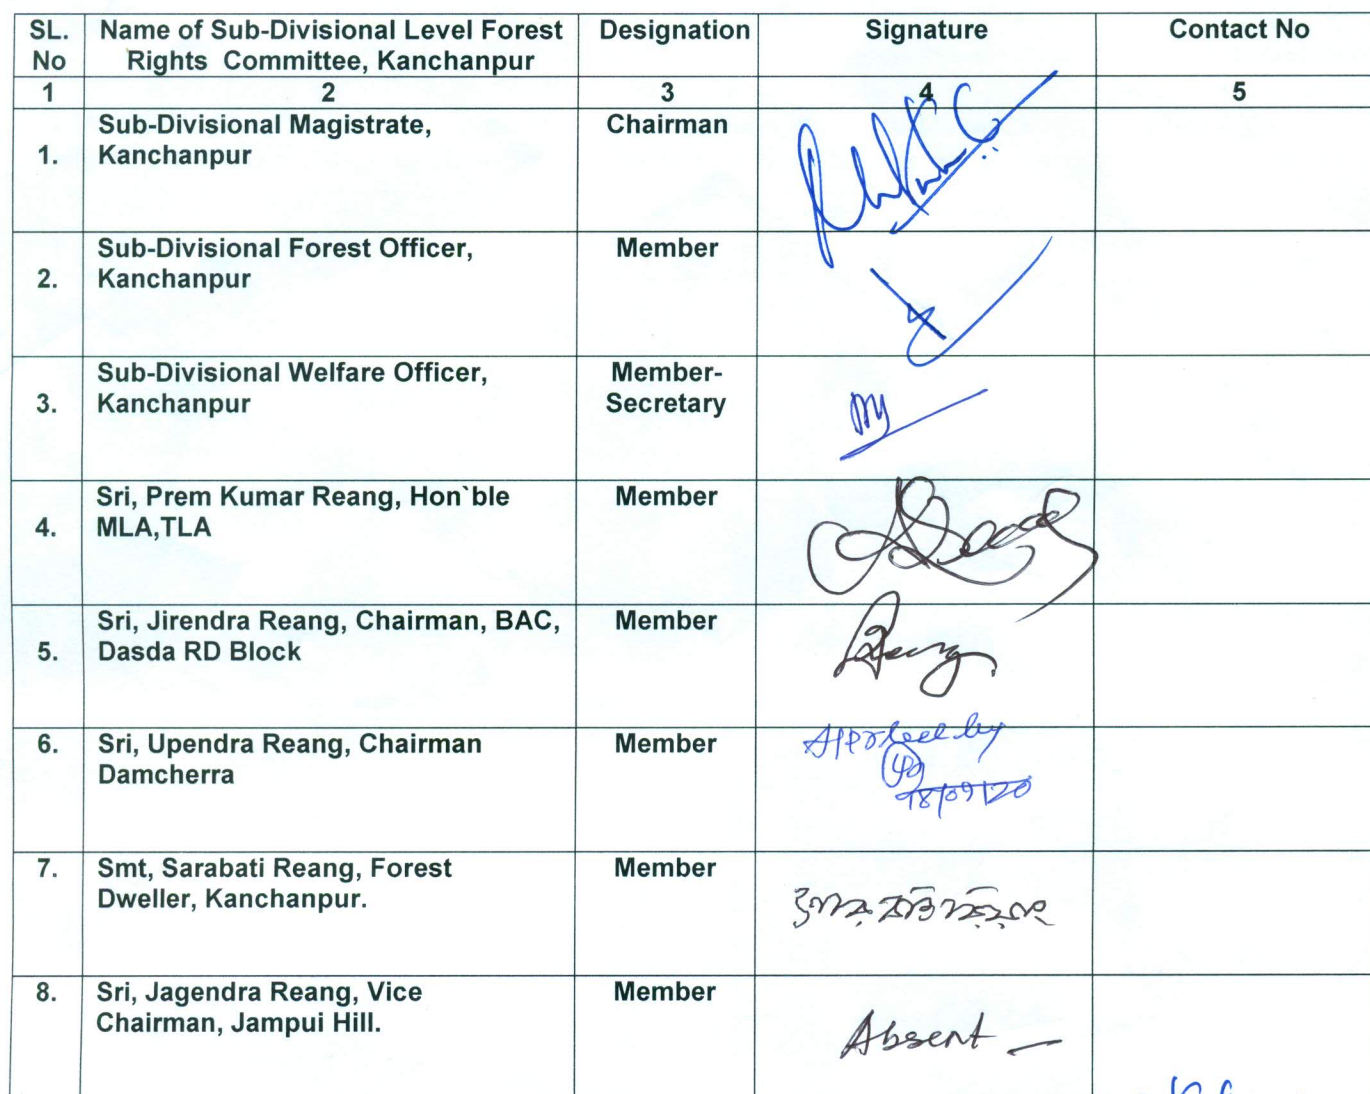 SL. No
Name of Sub-Divisional Level Forest Rights Committee, Kanchanpur
Designation
Signature
Contact No
1
2
3
4
5
1.
Sub-Divisional Magistrate,
Kanchanpur
Chairman
2.
Sub-Divisional Forest Officer,
Kanchanpur
Member
3.
Sub-Divisional Welfare Officer,
Kanchanpur
Member-
Secretary
4.
Sri, Prem Kumar Reang, Hon`ble
MLA,TLA
Member
5.
Sri, Jirendra Reang, Chairman, BAC,
Dasda RD Block
Member
6.
Sri, Upendra Reang, Chairman
Damcherra
Member
by
18/09/20
7.
Smt, Sarabati Reang, Forest
Dweller, Kanchanpur.
Member
8.
Sri, Jagendra Reang, Vice
Chairman, Jampui Hill.
Member
Absent —